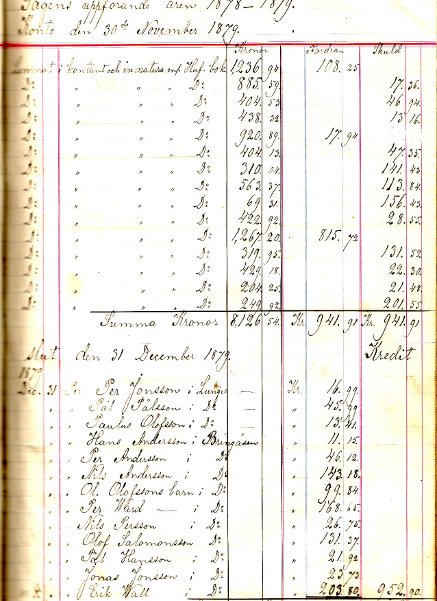 vägens uppförande åren 1878-1879.
Konto den 30de November 1879.
Kronor Fordran Skuld
Lemnat kontant och in natura enl. Huf. bok 1,236 94 108 25
Do " " Do 885 59 17 36
Do " " Do 404 53 46 94
Do " " Do 438 32 13 16
Do " " Do 920 89 17 94
Do " " Do 404 13 47 35
Do " " Do 310 04 141 43
Do " " Do 563 37 113 84
Do " " Do 69 31 156 43
Do " " Do 422 92 28 55
Do " " Do 1,267 20 815 72
Do " " Do 319 95 131 52
Do " " Do 429 18 22 30
Do " " Do 204 25 21 48
Do " " Do 249 92 201 55
Summa Kronor 8,126 54 Kr. 941 91 Kr. 941 91
slut den 31 December 1879.
Kredit
1879
Dec. 31 Per Per Jonsson i Lunge — Kr. 16 99
" " Pål Pålsson i Do — " 45 99
" " Paulus Olofsson i Do — " 13 41
" " Hans Andersson i Bringåsen " 11 15
" " Per Andersson i Do " 46 12
" " Nils Andersson i Do " 143 18
" " Ol. Olofssons barn i Do " 99 84
" " Per Ward — i Do " 168 65
" " Nils Persson i Do " 26 75
" " Olof Salomonsson Do " 131 37
" " Pål Hansson i Do " 21 92
" " Jonas Jonsson i Do " 23 73
" " Erik Wall i Do " 203 80 952 90